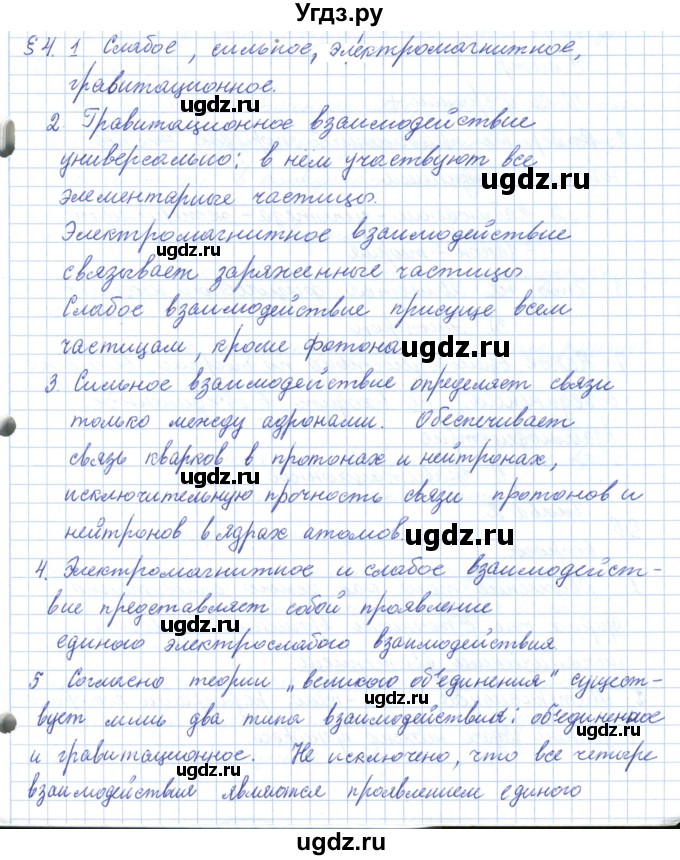 Угдз.ру
§4. 1 Слабое, сильное, электромагнитное,
гравитационное.
ugdz.ru
ugdz.ru
2. Гравитационное взаимодействие
универсально: в нём участвуют все
ugdz.ru
элементарные частицы.
ugdz.ru
Электромагнитное взаимодействие
ugdz.ru
связывает заряженные частицы
Слабое взаимодействие присуще всем
частицам, кроме фотона
ugdz.ru
3. Сильное взаимодействие определяет связи
только между адронами. Обеспечивает
ugdz.ru
связь кварков в протонах и нейтронах,
ugdz.ru
исключительную прочность связи протонов и
нейтронов в ядрах атомов.
ugdz.ru
4. Электромагнитное и слабое взаимодейст-
вие представляет собой проявление
ugdz.ru
ugdz.ru
единого электрослабого взаимодействия
5 Согласно теории „великого объединения" сущест-
вует лишь два типа взаимодействия: объединенное
ugdz.ru
и гравитационное. Не исключено, что все четыре
ugdz.ru
взаимодействия являются проявлением единого
ugdz.ru
ugdz.ru